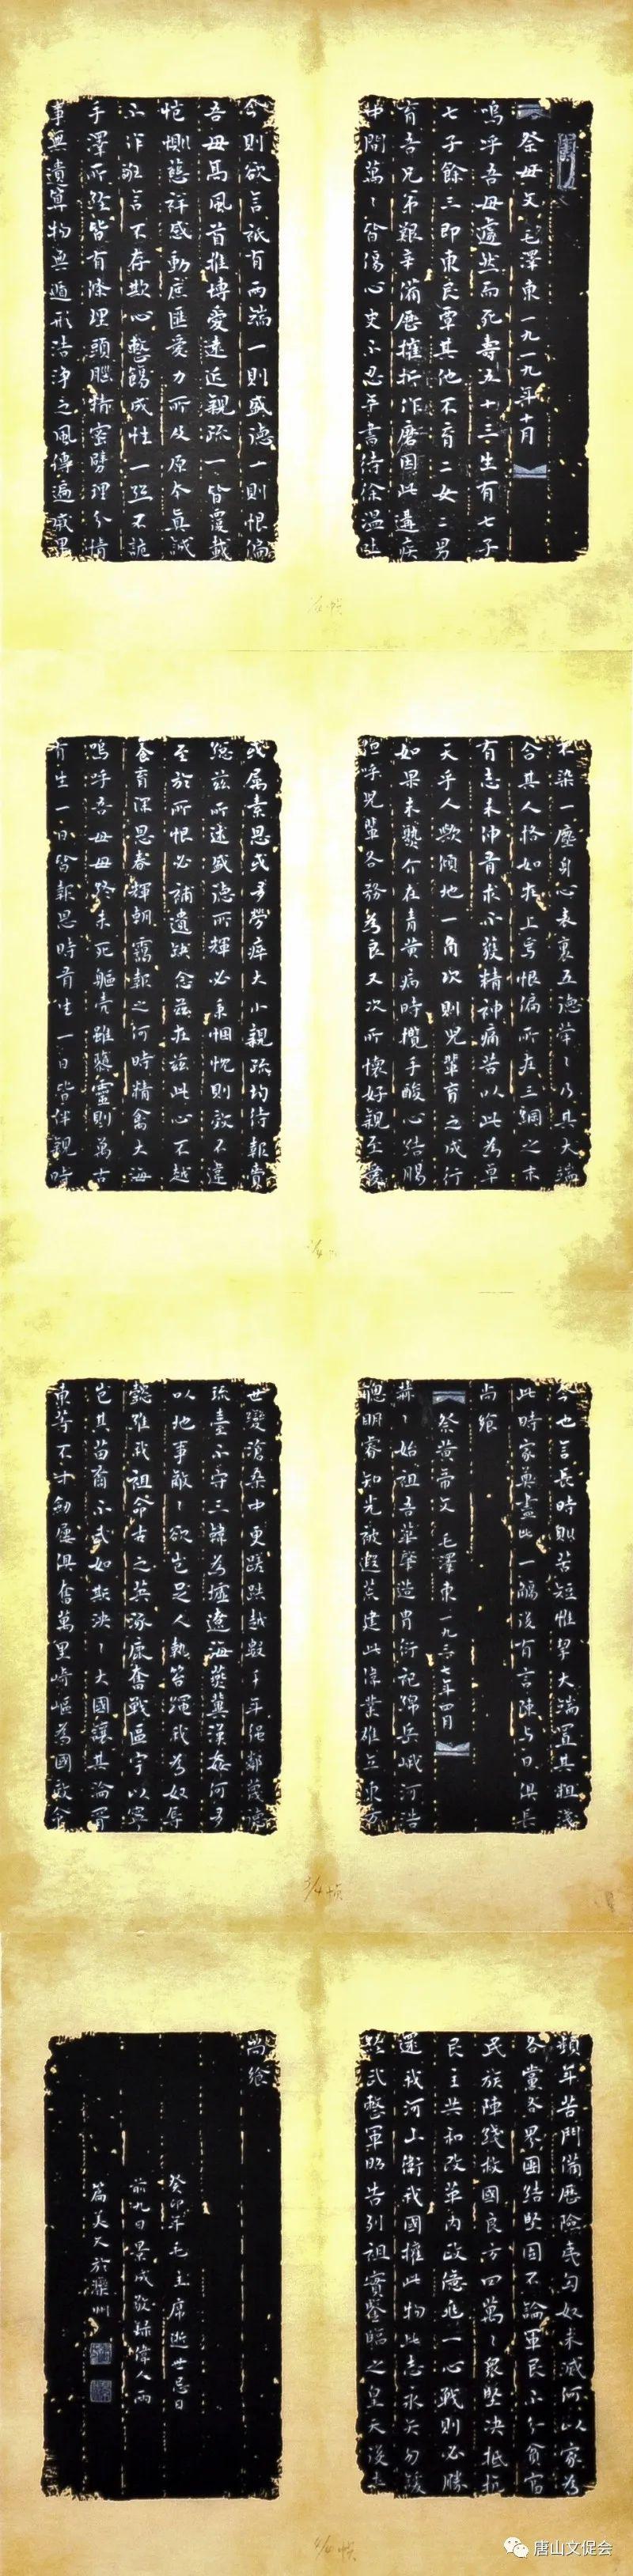 祭母文 毛澤東一九一九年十月
嗚呼吾母遽然而死壽五十三生有七子
七子餘三即東民覃其他不育二女二男
育吾兄弟艱辛備歷摧折作磨因此遘疾
中間萬〻皆傷心史不忍卒書待徐溫吐
今則欲言祇有兩端一則盛德一則恨偏
吾母高風首推博愛遠近親疏一皆覆載
愷惻慈祥感動庶匯愛力所及原本真誠
不作誑言不存欺心整飭成性一絲不詭
手澤所經皆有條理頭腦精密劈理分情
事無遺算物無遁形洁淨之風傳遍戚里
不染一塵身心表裏五德犖〻乃其大端
合其人格如在上焉恨偏所在三綱之末
有志未伸有求不獲精神痛苦以此為卓
天乎人歟傾地一角次則兒輩育之成行
如果未熟介在青黃病時攬手酸心結腸
但呼兒輩各務為良又次所懷好親至愛
或屬素恩或多勞瘁大小親疏均待報賚
總茲所述盛德所輝必秉悃忱則效不違
至於所恨必補遺缺念茲在茲此心不越
養育深恩春輝朝靄報之何時精禽大海
嗚呼吾母母終未死軀壳雖隳靈則萬古
有生一日皆報恩時有生一日皆伴親時
今也言長時則苦短惟挈大端置其粗淺
此時家奠盡此一觴後有言陳與日俱長
尚饗
祭黃帝文 毛澤東一九三七年四月
赫〻始祖吾華肇造胄衍祀綿岳峨河浩
聰明睿知光被遐荒建此偉業雄立東方
世變滄桑中更蹉跌越數千年强鄰蔑德
琉臺不守三韓為墟遼海燕冀漢奸何多
以地事敵〻欲豈足人執笞繩我為奴辱
懿維我祖命世之英涿鹿奮戰區宇以寧
豈其苗裔不武如斯泱〻大國讓其淪胥
東等不才劍屨俱奮萬里崎嶇為國效命
頻年苦鬥備歷險夷匈奴未滅何以家為
各黨各界團結堅固不論軍民不分貧富
民族陣綫救國良方四萬〻衆堅决抵抗
民主共和改革內政億兆一心戰則必勝
還我河山衛我國權此物此志永矢勿諼
經武整軍昭告列祖實鑒臨之皇天後土
尚饗
癸卯年毛主席逝世忌日
前九日景成敬録偉人兩
篇美文於灤州
唐山文促会